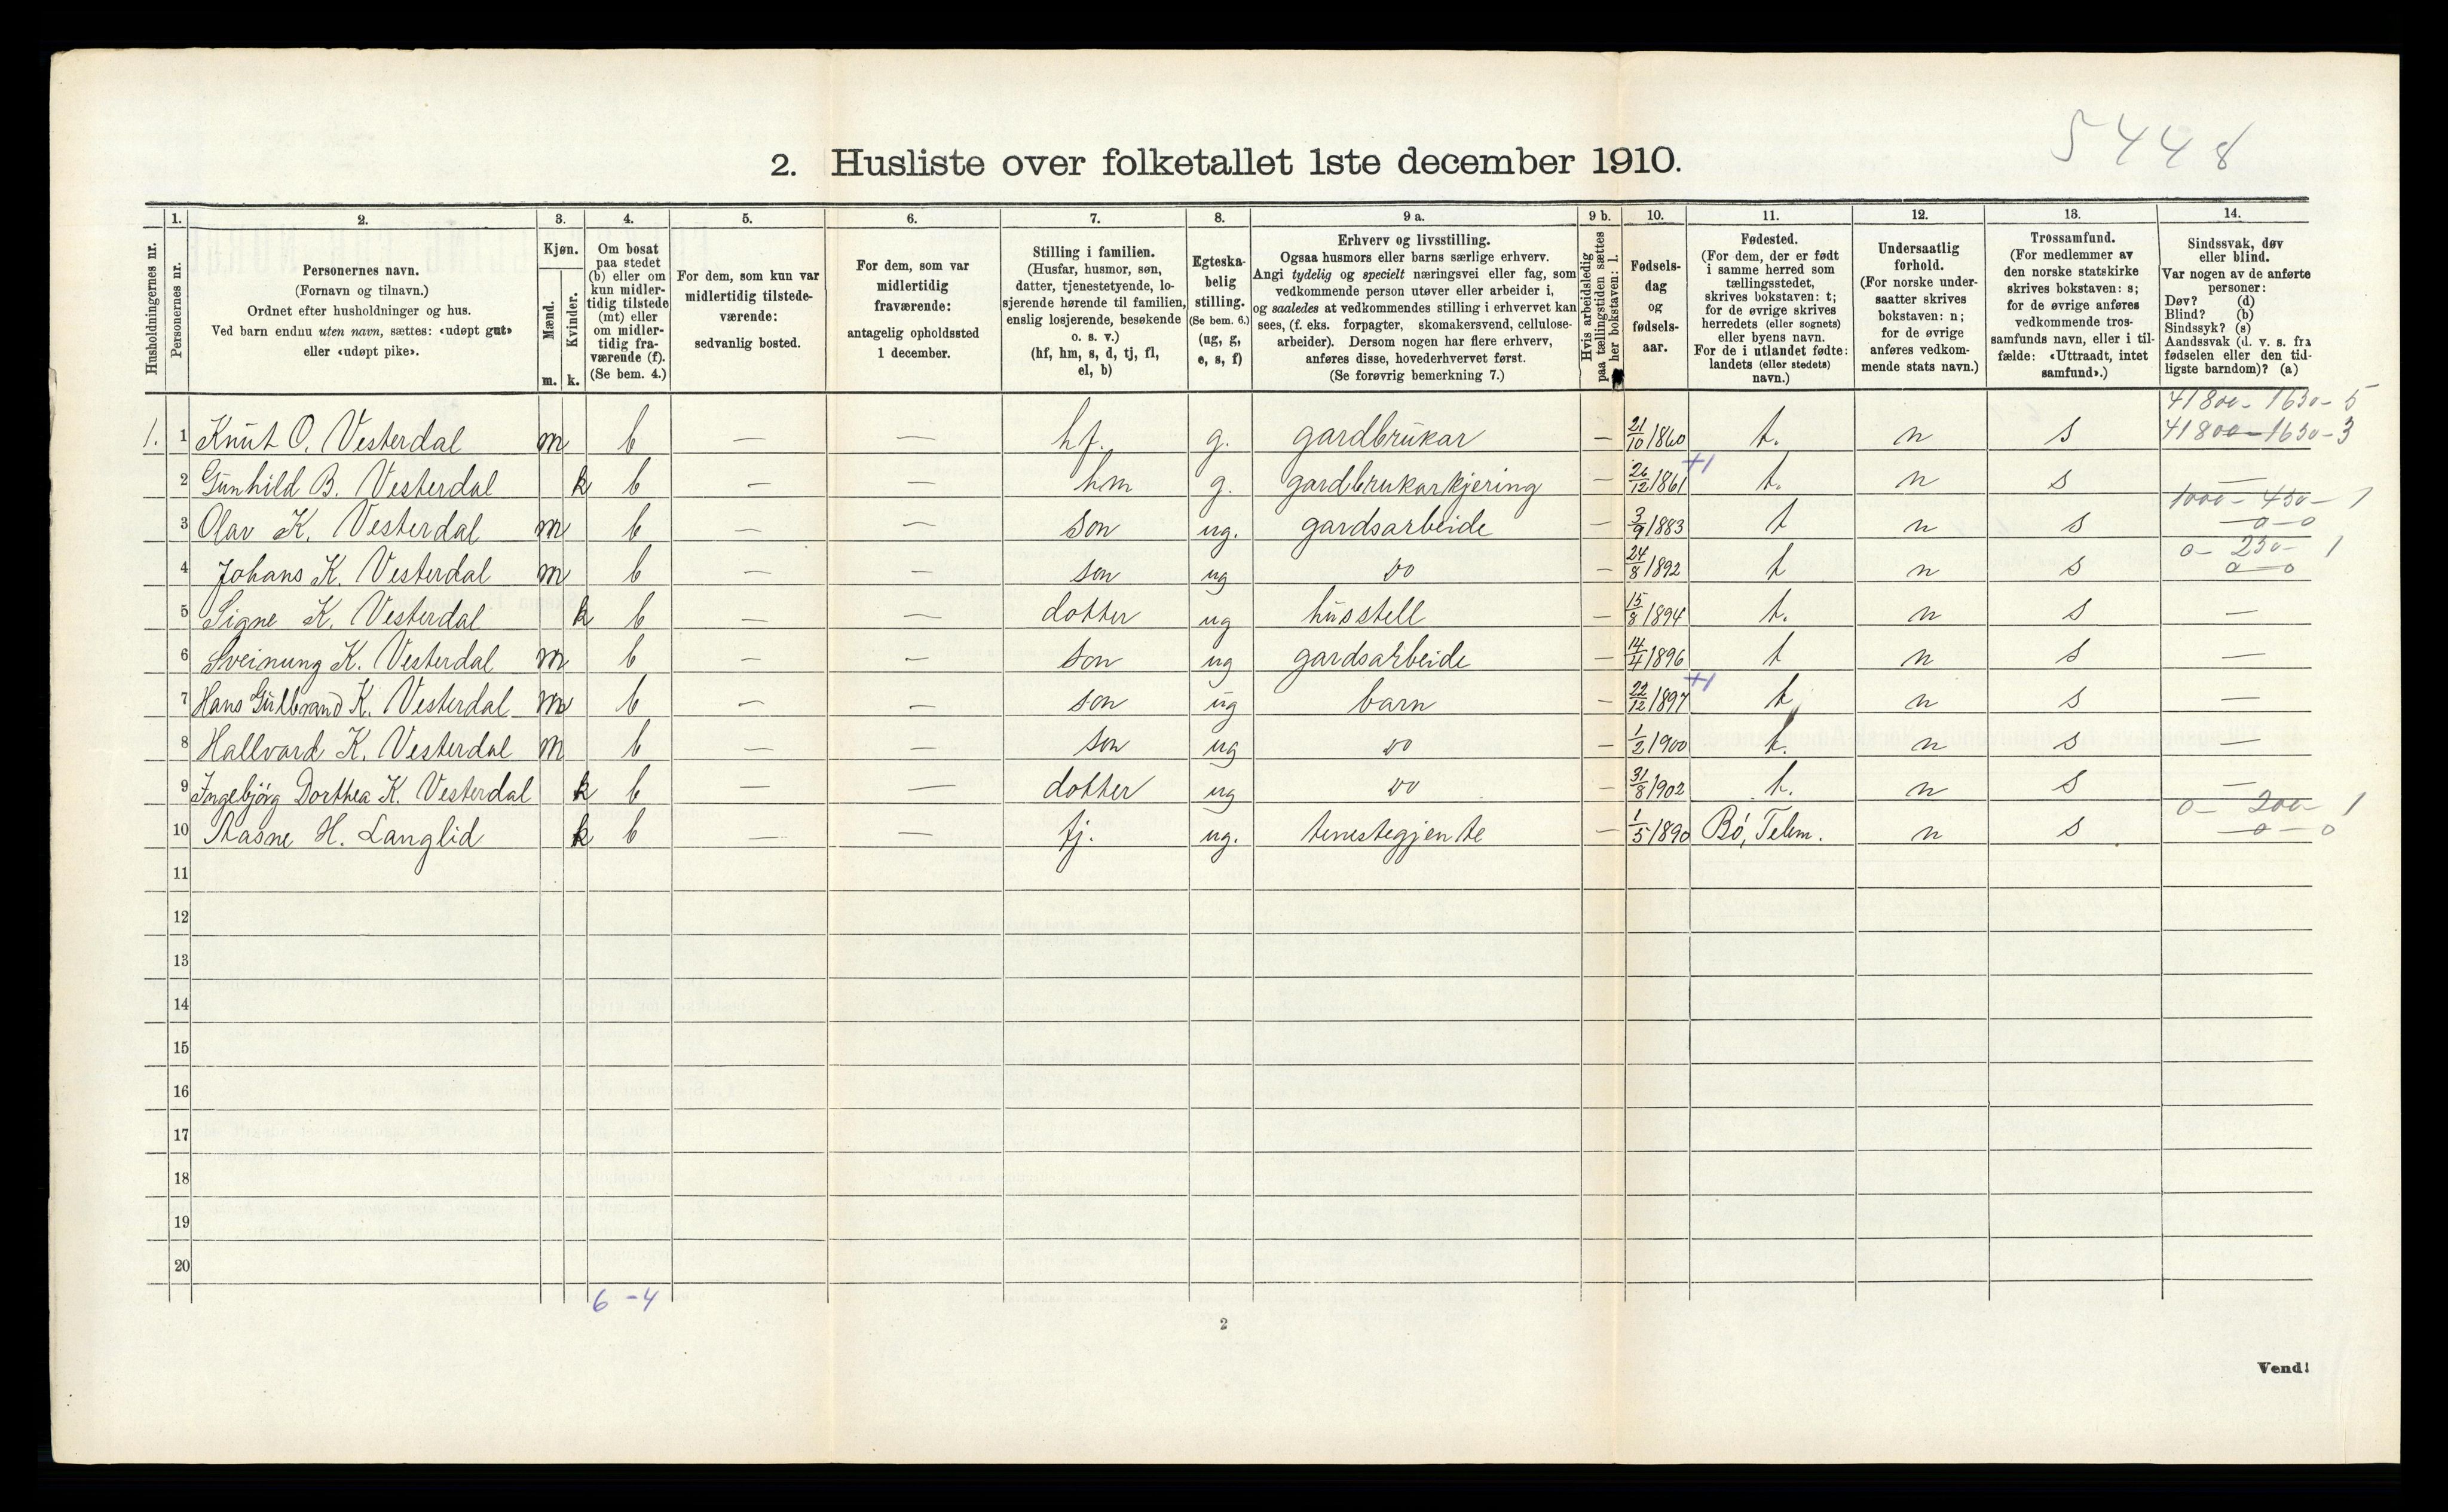 5448
2. Husliste over folketallet 1ste december 1910.
Husholdningernes nr.
1. Personernes nr.
2. Personernes navn. (Fornavn og tilnavn.) Ordnet efter husholdninger og hus. Ved barn endnu uten navn, sættes: «udøpt gut» eller «udøpt pike».
3. Kjøn. Mænd. m. Kvinder. k.
4. Om bosat paa stedet (b) eller om kun midlertidig tilstede (mt) eller om midlertidig fraværende (f). (Se bem. 4.)
5. For dem, som kun var midlertidig tilstedeværende: sedvanlig bosted.
6. For dem, som var midlertidig fraværende: antagelig opholdssted 1 december.
7. Stilling i familien. (Husfar, husmor, søn, datter, tjenestetyende, losjerende hørende til familien, enslig losjerende, besøkende o. s. v.) (hf, hm, s, d, tj, fl, el, b)
8. Egteskabelig stilling. (Se bem. 6.) (ug, g, e, s, f)
9 a. Erhverv og livsstilling. Ogsaa husmors eller barns særlige erhverv. Angi tydelig og specielt næringsvei eller fag, som vedkommende person utøver eller arbeider i, og saaledes at vedkommendes stilling i erhvervet kan sees, (f. eks. forpagter, skomakersvend, cellulosearbeider). Dersom nogen har flere erhverv, anføres disse, hovederhvervet først. (Se forøvrig bemerkning 7.)
9 b. Hvis arbeidsledig paa tællingstiden sættes her bokstaven: l.
10. Fødselsdag og fødselsaar.
11. Fødested. (For dem, der er født i samme herred som tællingsstedet, skrives bokstaven: t; for de øvrige skrives herredets (eller sognets) eller byens navn. For de i utlandet fødte: landets (eller stedets) navn.)
12. Undersaatlig forhold. (For norske undersaatter skrives bokstaven: n; for de øvrige anføres vedkommende stats navn.)
13. Trossamfund. (For medlemmer av den norske statskirke skrives bokstaven: s; for de øvrige anføres vedkommende trossamfunds navn, eller i tilfælde: «Uttraadt, intet samfund».)
14. Sindssvak, døv eller blind. Var nogen av de anførte personer: Døv? (d) Blind? (b) Sindssyk? (s) Aandssvak (d. v. s. fra fødselen eller den tidligste barndom)? (a)
41800 - 1630 - 5
1. 1 Knut O. Vesterdal m b — — hf. g. gardbrukar — 21/10 1860 t. n s 41800 - 1630 - 3
2 Gunhild B. Vesterdal k b — — hm g. gardbrukarkjering — 26/12 1861 +1 t. n s —
1000 - 450 - 1
3 Olav K. Vesterdal m b — — son ug. gardsarbeide — 3/9 1883 t n s — 0 - 0
0 - 230 - 1
4 Johans K. Vesterdal m b — — son ug do — 24/8 1892 t n s 0 — 0
5 Signe K. Vesterdal k b — — dotter ug husstell — 15/8 1894 t. n s —
6 Sveinung K. Vesterdal m b — — son ug gardsarbeide — 14/4 1896 t n s —
7 Hans Gulbrand K. Vesterdal m b — — son ug barn — 22/12 1897 +1 t n s —
8 Hallvard K. Vesterdal m b — — son ug do — 1/2 1900 t. n s —
9 Ingebjørg Dorthea K. Vesterdal k b — — dotter ug do — 31/8 1902 t. n s —
0 - 200 - 1
10 Aasne H. Langlid k b — — tj. ug. tenestegjente — 1/5 1890 Bø, Telem. n s — 0 - 0
11
12
13
14
15
16
17
18
19
20
6 - 4
2
Vend!